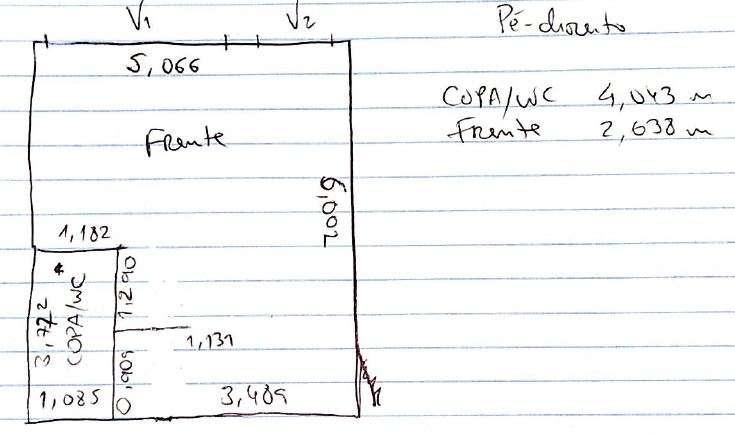 V1 V2
Pé-direito
5,066
COPA/WC 4,043 m
Frente 2,638 m
Frente
6,002
1,182
3,772
COPA/WC
1,290
1,131
0,909
1,085
3,489